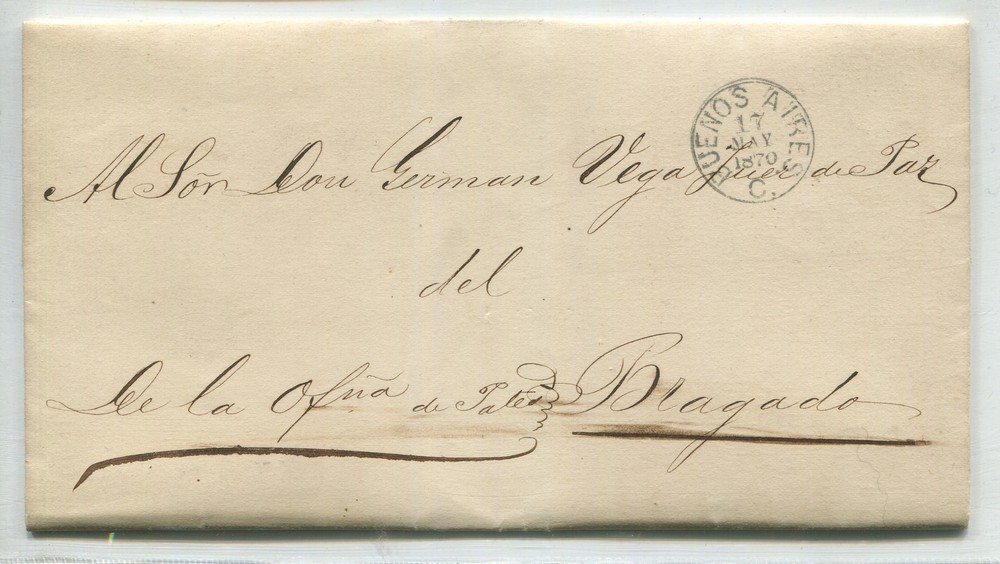 BUENOS AIRES
17
MAY
1870
C.
Al Sõr Don German Vega Juez de Paz
del
De la Ofña de Pates Bragado